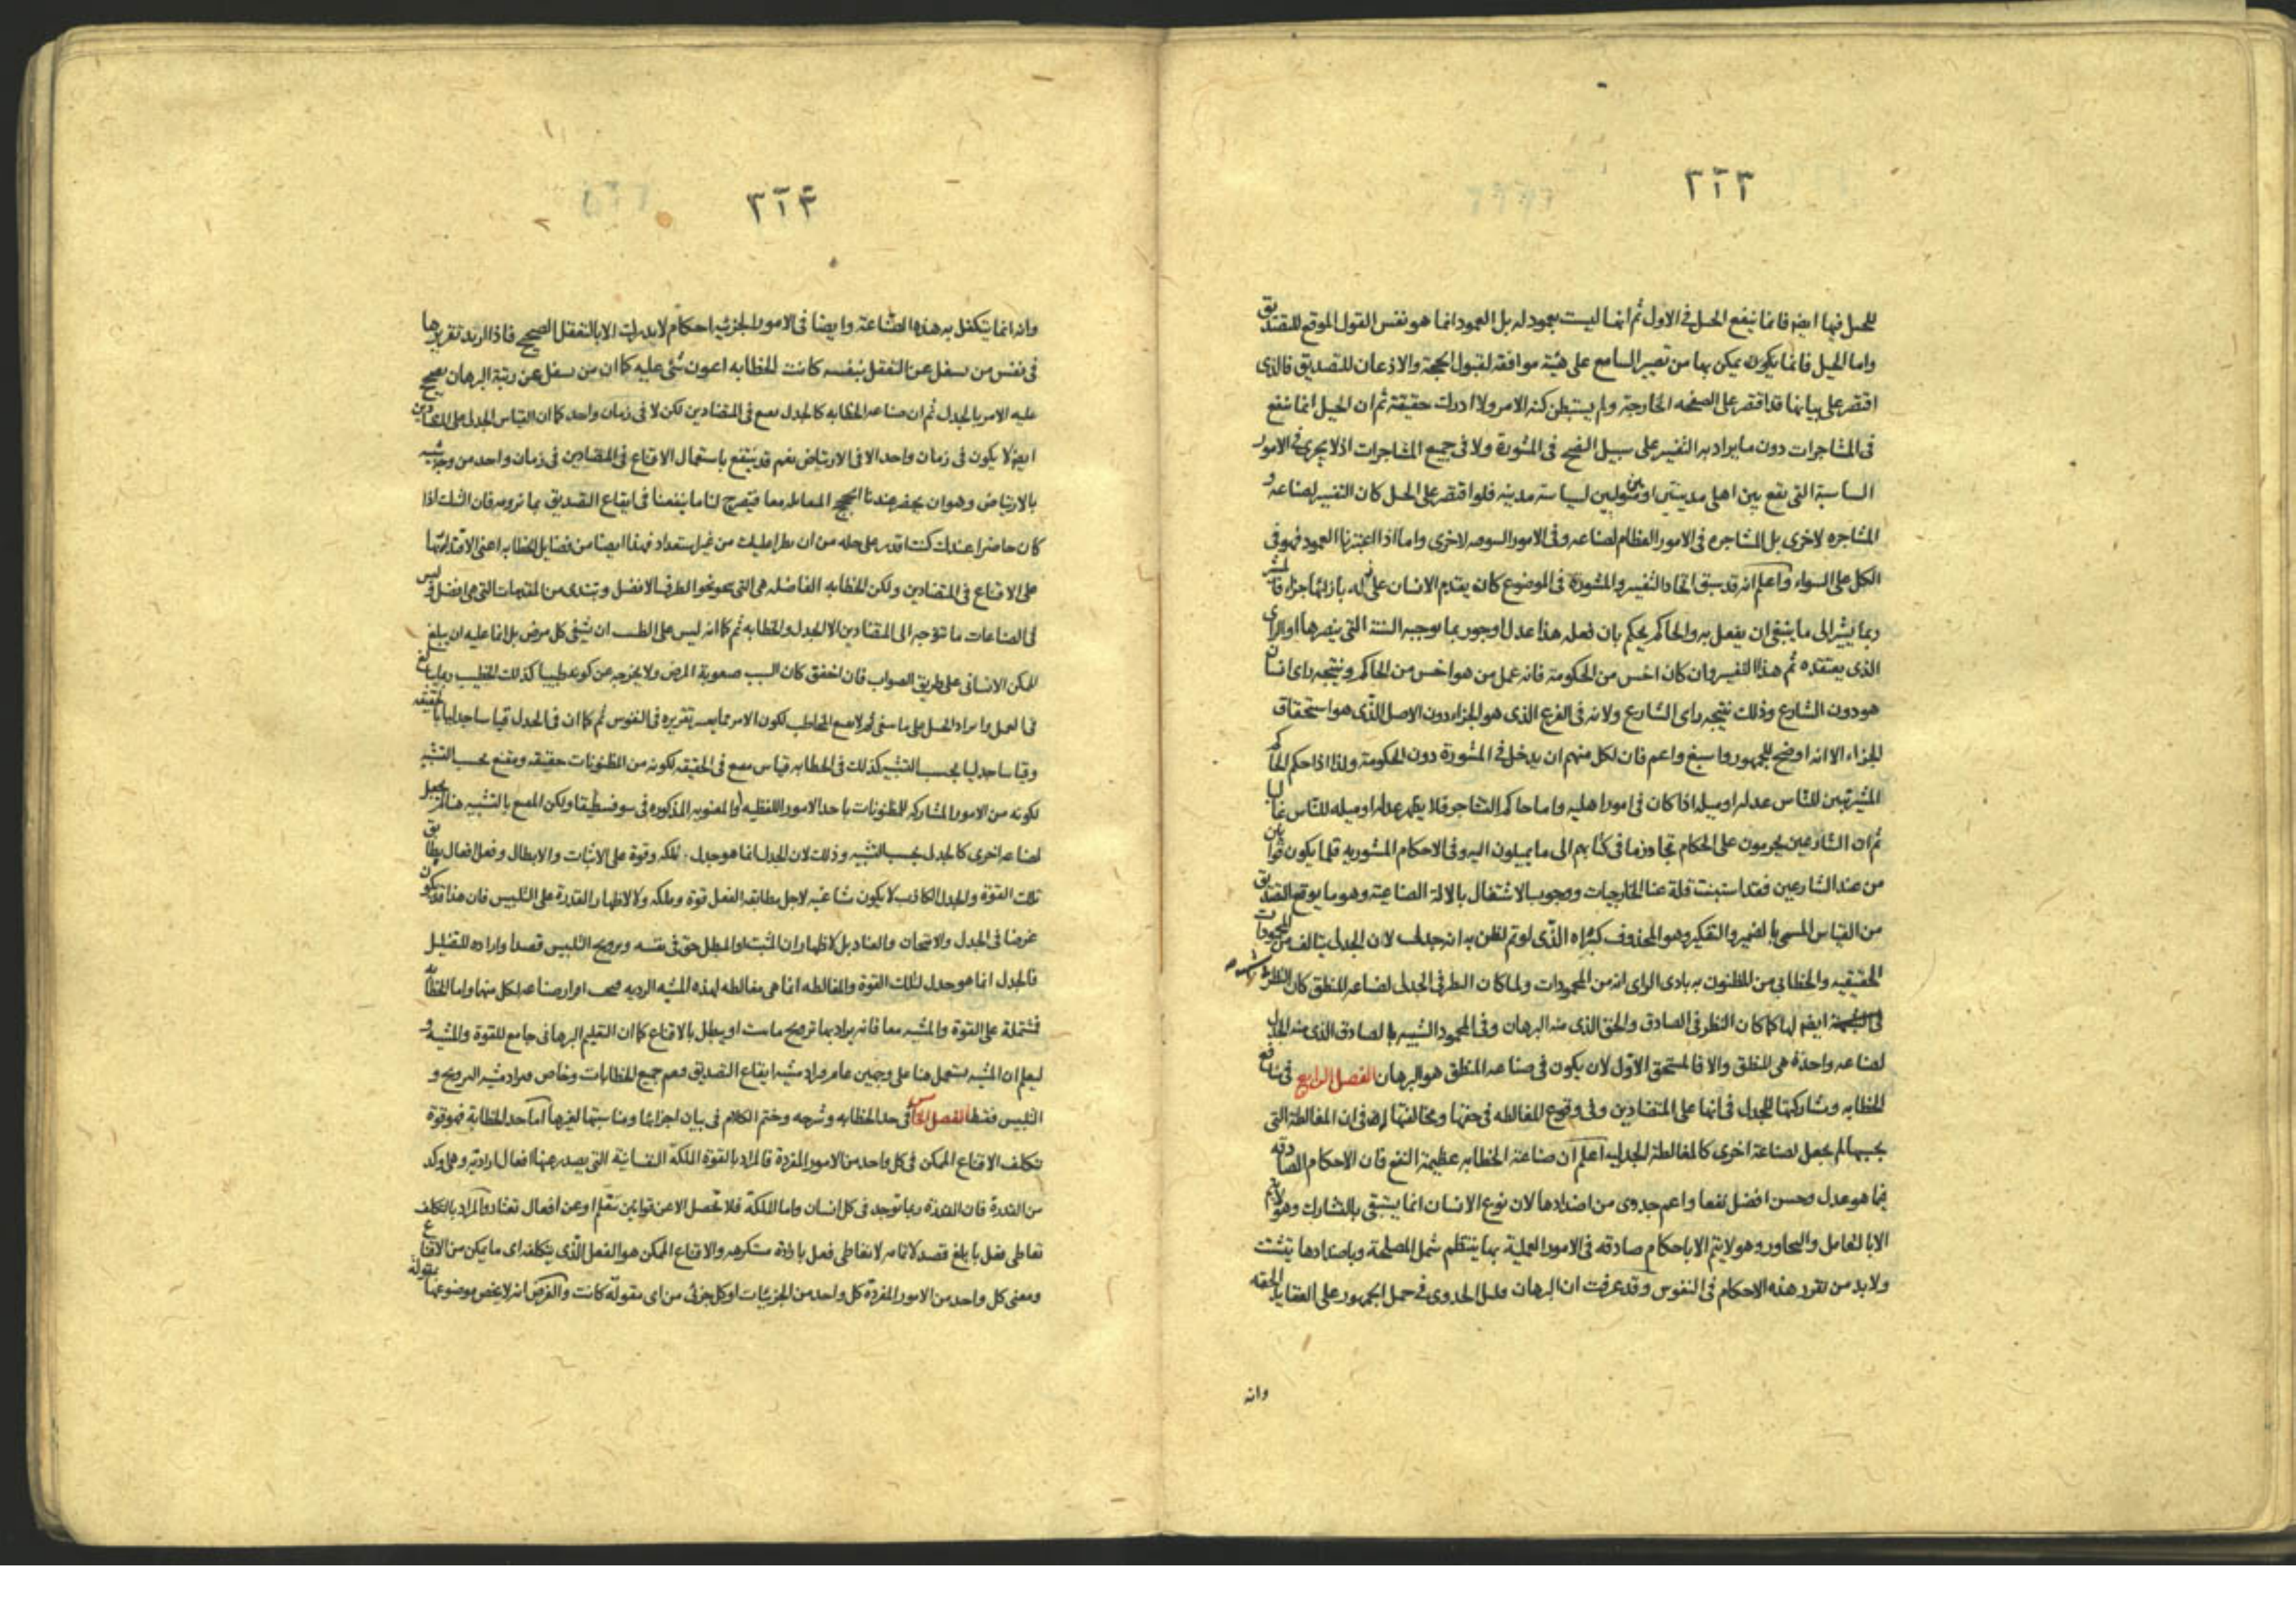 ٣٢٣
للحيل فيها ايضا فانما ينفع الحيل فى الاول ثم انها ليست بعمود له بل العمود انما هو نفس القول الموقع للتصديق
واما الحيل فانما يكون يمكن بها من تصيير السامع على هيئة موافقة لقبول الحجة والاذعان للتصديق فالذى
اقتصر على بيانها قد اقتصر على الصفحه الخارجة ولم يستبطن كنه الامر ولا ادرك حقيقة ثم ان الحيل انما ينفع
فى المشاجرات دون ما يراد به التفسير على سبيل النصح فى المشورة ولا فى جميع المشاجرات اذ لا يجرى فى الامور
الساسية التى يقع بين اهل مدينتين او متولين لسياسة مدينه فلو اقتصر على الحيل كان التفسير لصناعه و
المشاجره لاخرى بل المشاجره فى الامور العظام لصناعه وفى الامور السوقيه لاخرى واما اذا اعتبرنا العمود فهو فى
الكل على السواء واعلم انه قد سبق اتحاد التفسير والمشورة فى الموضوع كان يقدم الانسان على فعله بازائها جزاء فالمشير
ربما يشير الى ما ينبغى ان يفعل به والحاكم يحكم بان فعله هذا عدل او جور بما يوجبه السنة التى ينصرها او الراى
الذى يعتقده ثم هذا التفسير وان كان اخس من الحكومة فانه عمل من هو اخس من الحاكم ونتيجه راى انسان
هو دون الشارع وذلك نتيجه راى الشارع ولانه فى الفرع الذى هو الجزاء دون الاصل الذى هو استحقاق
الجزاء الا انه اوضح للجمهور واسبغ واعم فان لكل منهم ان يدخل فى المشورة دون الحكومة ولذا اذا حكم الحاكم
المشير تبين للناس عدله او ميله اذا كان فى امور اهليه واما حاكم التشاجر فلا يظهر عدله او ميله للناس غالبا
ثم ان الشارعين يحرمون على الحكام تجاوز ما فى كتابهم الى ما يميلون اليه وفى الاحكام المشوريه قلما يكون قوانين
من عند الشارعين فقد استبنت قلة عنا الخارجيات ووجوب الاشتغال بالالة الصناعية وهو ما يوقع التصديق
من القياس المسمى بالضمير والتفكير وهو المحذوف كبراه الذى لو تم لظن به انه جدلى لان الجدلى يتالف من المحمودات
الحقيقيه والخطابى من المظنون به بادى الراى انه من المحمودات ولما كان النظر فى الجدل لصناعه المنطق كان النظر
ايضا لها كما كان النظر فى الصادق والحق الذى منه البرهان وفى المحمود الشبيه بالصادق الذى منه الجدل
لصناعه واحدة هى المنطق والا فالمستحق الاول لان يكون فى صناعه المنطق هو البرهان الفصل الرابع فى منافع
الخطابه ومشاركتها للجدل فى انها على المتضادين وفى وقوع المغالطه فى حقها ومخالفتها له فى ان المغالطة التى
بحسبها لم يجعل لصناعة اخرى كالمغالطة الجدليه اعلم ان صناعة الخطابه عظيمة النفع فان الاحكام الصادقه
فيما هو عدل وحسن افضل نفعا واعم جدوى من اضدادها لان نوع الانسان انما يستبقى بالتشارك وهو لا يتم
الا بالتعامل والتحاور وهو لا يتم الا باحكام صادقه فى الامور العملية بها ينتظم شمل المصلحة وباضدادها يتشتت
ولا بد من تقرر هذه الاحكام فى النفوس وقد عرفت ان البرهان قليل الجدوى فى حمل الجمهور على العقايد الحقه
وانه
٣٢٤
وانه انما يتكفل به هذه الصناعة وايضا فى الامور الجزئيه احكام لا يدرك الا بالتعقل الصحيح فاذا اريد تقريرها
فى نفس من سفل عن التعقل بنفسه كانت الخطابه اعون شئ عليه كما ان من سفل عن رتبة البرهان يصحح
عليه الامر بالجدل ثم ان صناعه الخطابه كالجدل يقنع فى المتضادين لكن لا فى زمان واحد كما ان القياس الجدلى على المتضادين
ايضا لا يكون فى زمان واحد الا فى الارتياض نعم قد ينتفع باستعمال الاقناع فى المتضادين فى زمان واحد من وجه شبيه
بالارتياض وهو ان يحضر عندنا الحجج المتقابله معا فيتصرح لنا ما ينفعنا فى ايقاع التصديق بما نرومه فان الشك اذا
كان حاضرا عندك كنت اقدر على حله من ان يطرا عليك من غير استعداد فهذا ايضا من فضايل الخطابه اعنى الاقتدار بها
على الاقناع فى المتضادين ولكن الخطابه الفاضله هى التى ينحو نحو الطرف الافضل ويبتدى من المقدمات التى هى افضل وليس
فى الصناعات ما تتوجه الى المتضادين الا الجدل والخطابه ثم كما انه ليس على الطب ان يشفى كل مرض بل انما عليه ان يبلغ
الممكن الانسانى على طريق الصواب فان اخفق كان السبب صعوبة المرض ولا يخرجه عن كونه طبيبا كذلك الخطيب ربما يبالغ
فى العمل وايراد الحيل على ما ينبغى ثم لا يقنع المخاطب لكون الامر مما يعسر تقريره فى النفوس ثم كما ان فى الجدل قياسا جدليا بالحقيقه
وقياسا جدليا بحسب التشبيه كذلك فى الخطابه قياس مقنع فى الحقيقه لكونه من المظنونات حقيقه ومقنع بحسب التشبيه
لكونه من الامور المشاركه للمظنونات باحد الامور اللفظيه او المعنويه المذكوره فى سوفسطيقا ولكن المقنع بالتشبيه هنا لم يجعل
لصناعه اخرى كالجدل بحسب التشبيه وذلك لان الجدل انما هو جدل لملكه وقوة على الاثبات والابطال وفعل افعال يطابق
تلك القوة والجدل الكاذب لا يكون مشاغبه لاجل مطابقه الفعل قوة وملكه ولا لاظهار القدرة على التلبيس فان هذا قد يكون
غرضا فى الجدل والامتحان والعناد بل لاظهار ان المثبت او المبطل حق فى نفسه وترويج التلبيس قصدا واراده للتضليل
فالجدل انما هو جدل لتلك القوة والمغالطه انما هى مغالطه لهذه المشيه الرديه فيجب افراد صناعه لكل منهما واما الخطابه
فمشتملة على القوة والمشيه معا فانه يراد بها ترويج ما يثبت او يبطل بالاقناع كما ان التعليم البرهانى جامع للقوة والمشيه و
ليعلم ان المشيه يستعمل هنا على وجهين عام يراد مشيه ايقاع التصديق ويعم جميع الخطابات وخاص يراد مشيه الترويج و
التلبيس فقط الفصل الخامس فى حد الخطابه وشرحه وختم الكلام فى بيان اجزائها ومناسبتها لغيرها اما حد الخطابة فهو قوة
تتكلف الاقناع الممكن فى كل واحد من الامور المفردة فالمراد بالقوة الملكة النفسانية التى يصدر عنها افعال ارادته وهى اوكد
من القدرة فان القدرة ربما توجد فى كل انسان واما الملكة فلا تحصل الا عن قوانين تتعلم او عن افعال تعتاد والمراد بالتكلف
تعاطى فعل بابلغ قصد لاتمامه لا تعاطى فعل بارادة مستكرهه والاقناع الممكن هو الفعل الذى يتكلفه اى ما يمكن من الاقناع
ومعنى كل واحد من الامور المفردة كل واحد من الجزئيات او كل جزئى من اى مقوله كانت والغرض انه لا يختص موضوعها بمقولة